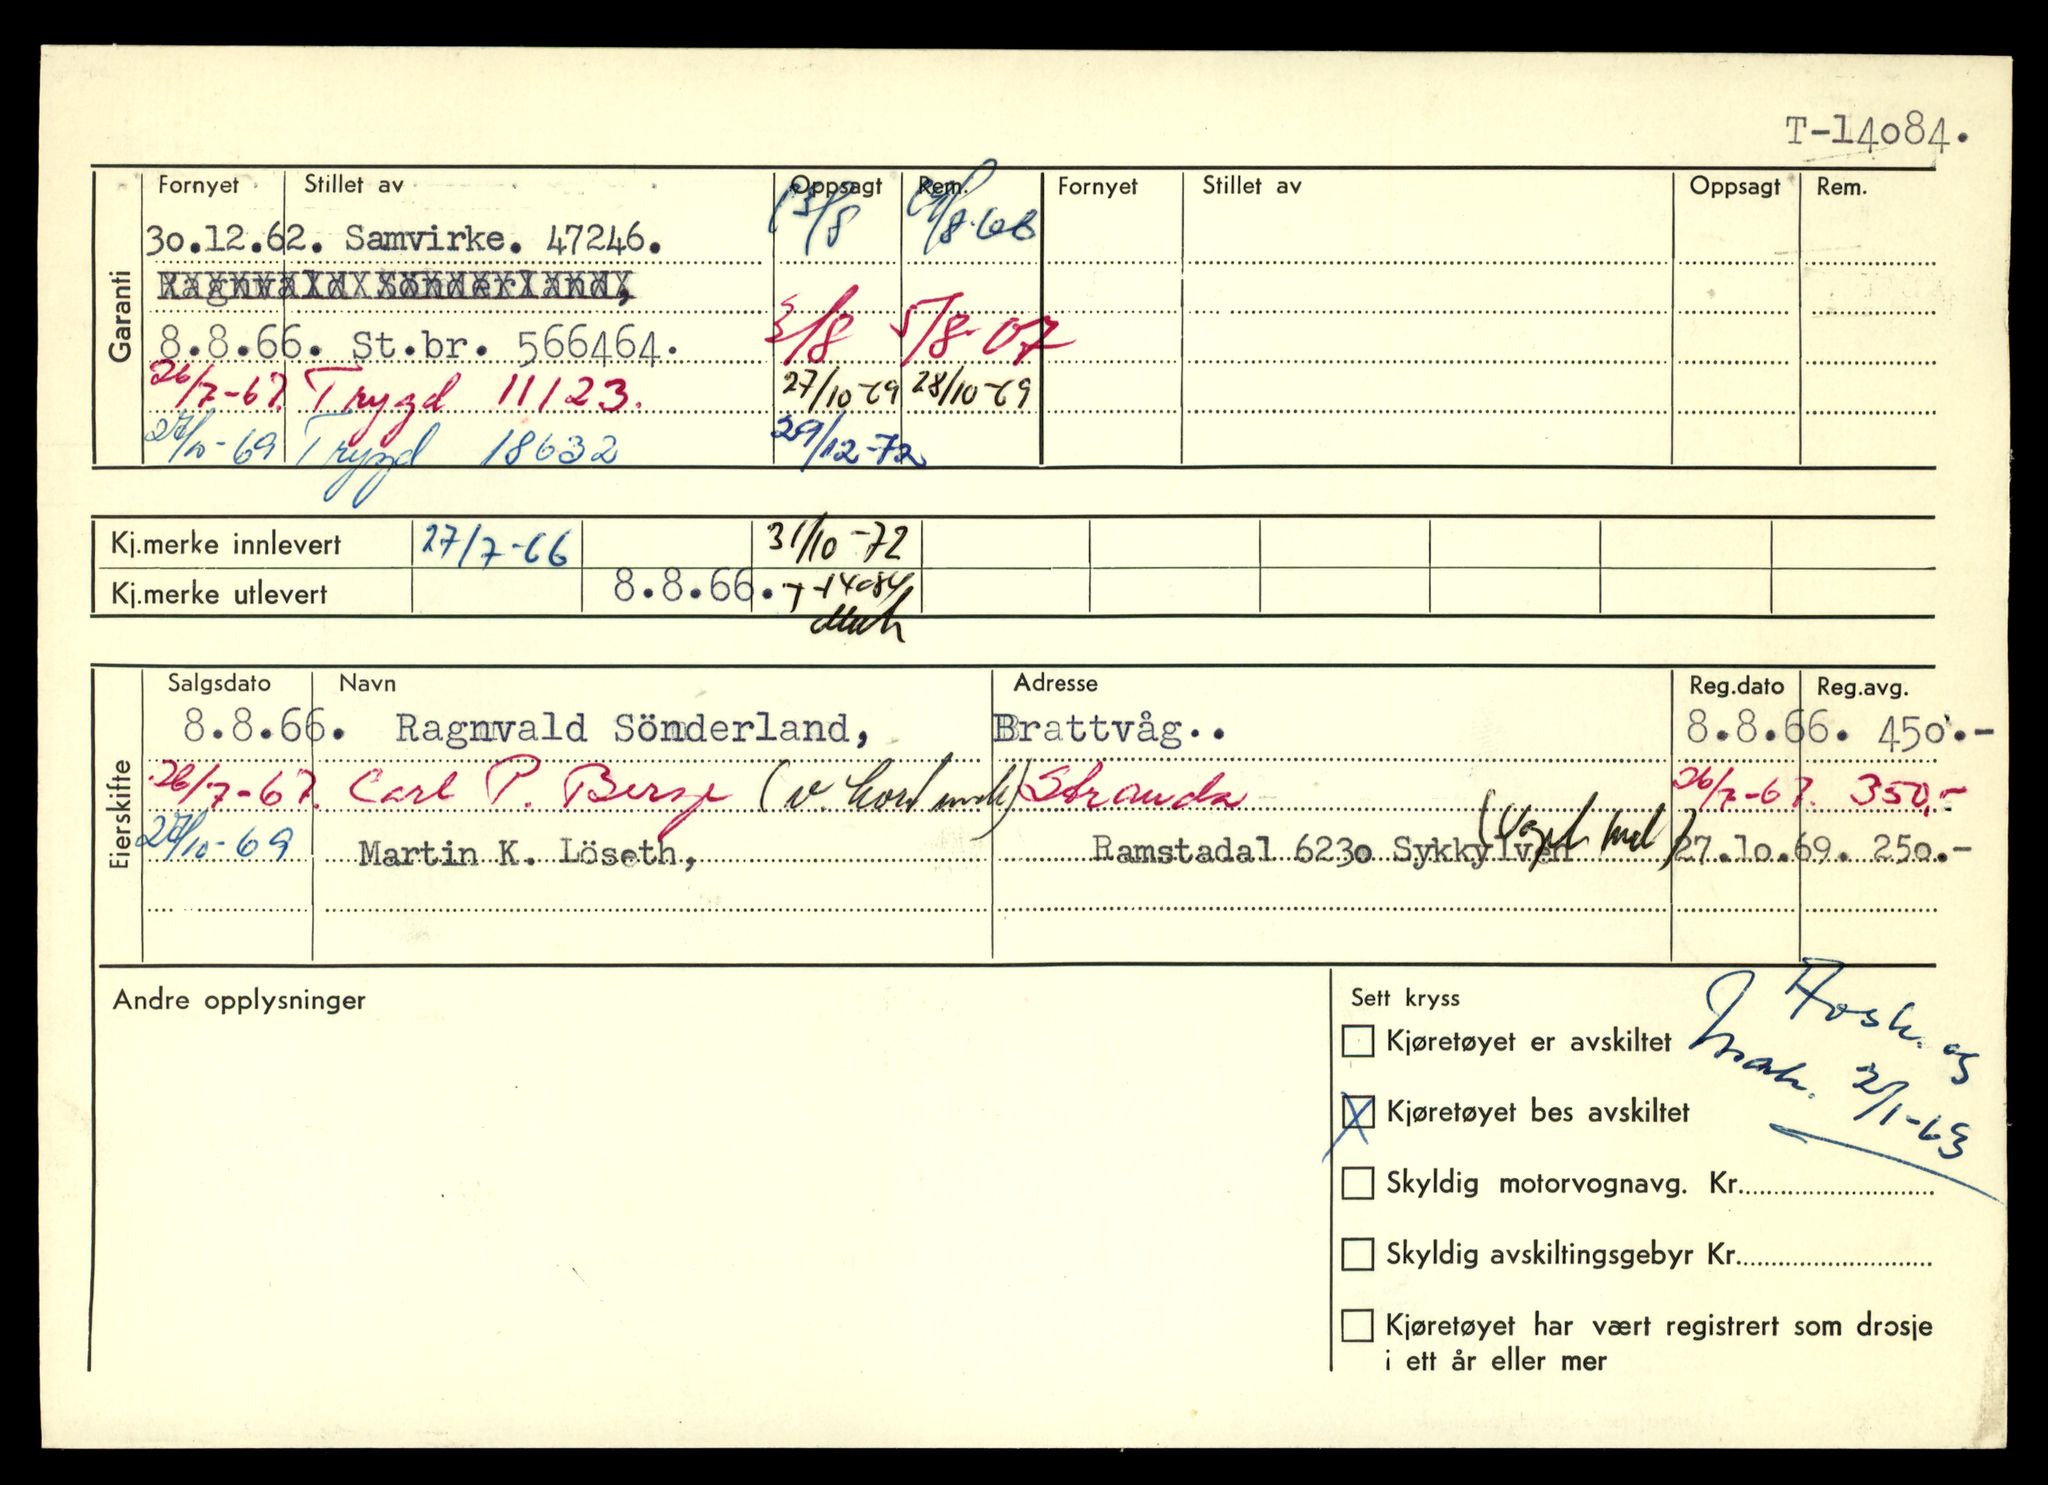 T-14084.
Garanti
Fornyet Stillet av Oppsagt Rem. Fornyet Stillet av Oppsagt Rem.
30.12.62. Samvirke. 47246. 13/8 /8-66
Ragnvald Sönderland,
8.8.66. St.br. 566464. 3/8 5/8-67
26/7-67. Trygd 11123. 27/10-69 28/10-69
27/10-69 Trygd 18632 29/12-72
Kj.merke innlevert 27/7-66 31/10-72
Kj.merke utlevert 8.8.66. T-14084
Eierskifte
Salgsdato Navn Adresse Reg.dato Reg.avg.
8.8.66. Ragnvald Sönderland, Brattvåg.. 8.8.66. 450.-
26/7-67. Carl P. Berge (v. ) Stranda 26/7-67. 350,-
27/10-69 Martin K. Löseth, Ramstadal 6230 Sykkylven 27.10.69. 250.-
Andre opplysninger
Sett kryss
Kjøretøyet er avskiltet
X Kjøretøyet bes avskiltet
Skyldig motorvognavg. Kr.
Skyldig avskiltingsgebyr Kr.
Kjøretøyet har vært registrert som drosje
i ett år eller mer
og
2/1-63